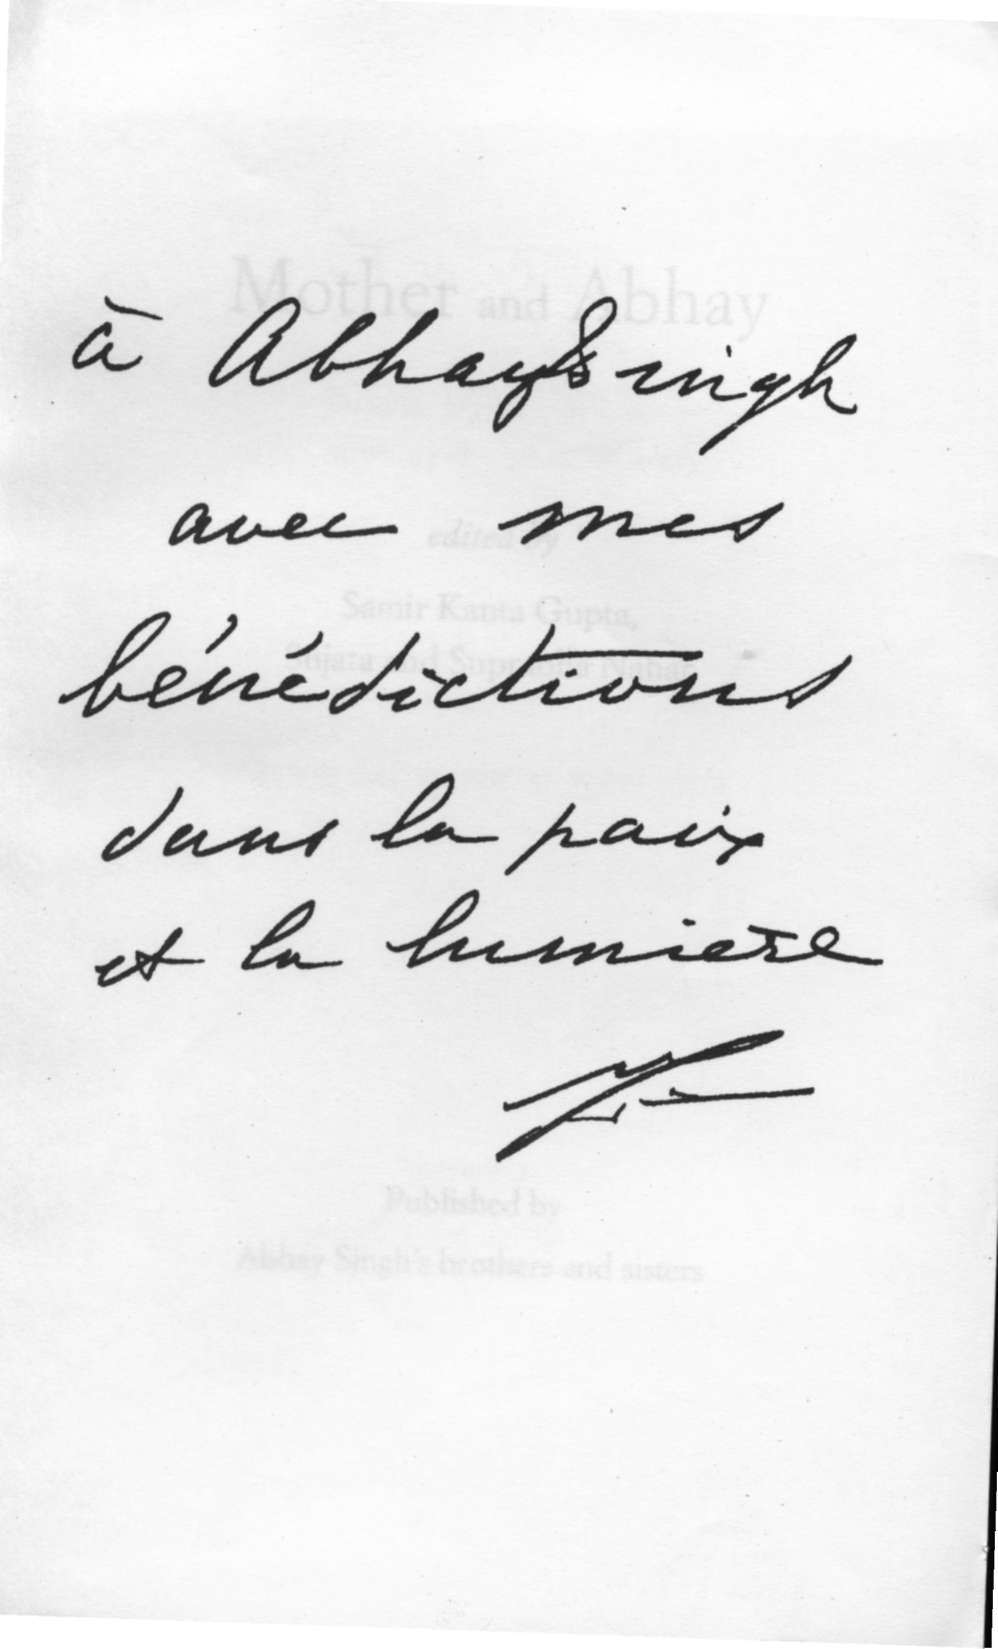 à Abhay Singh
avec mes
bénédictions
dans la paix
et la lumière
Mother and Abhay
edited by
Samir Kanta Gupta,
Sujata and Suprabha Nahar
Published by
Abhay Singh's brothers and sisters